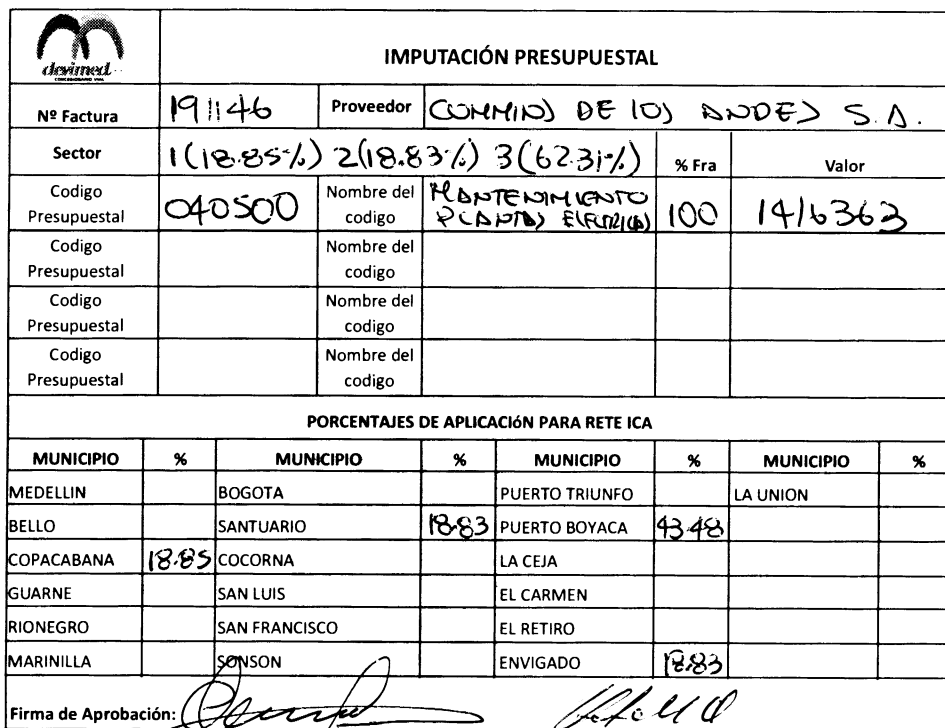 devimed
CONCESIONARIO VIAL
IMPUTACIÓN PRESUPUESTAL
Nº Factura 191146 Proveedor CUMMINS DE LOS ANDES S.A.
Sector 1(18.85%) 2(18.83%) 3(62.31%) % Fra Valor
Codigo Presupuestal 040500 Nombre del codigo MANTENIMIENTO PLANTAS ELECTRICAS 100 1416363
Codigo Presupuestal Nombre del codigo
Codigo Presupuestal Nombre del codigo
Codigo Presupuestal Nombre del codigo
PORCENTAJES DE APLICACIÓN PARA RETE ICA
MUNICIPIO % MUNICIPIO % MUNICIPIO % MUNICIPIO %
MEDELLIN BOGOTA PUERTO TRIUNFO LA UNION
BELLO SANTUARIO 18.83 PUERTO BOYACA 43.48
COPACABANA 18.85 COCORNA LA CEJA
GUARNE SAN LUIS EL CARMEN
RIONEGRO SAN FRANCISCO EL RETIRO
MARINILLA SONSON ENVIGADO 18.83
Firma de Aprobación: